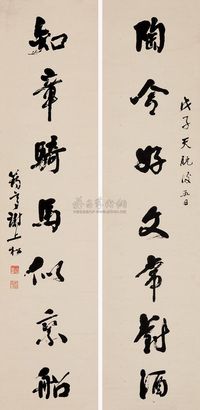 戊子天貺後五日
陶令好文常對酒
知章騎馬似乘船
謝上松